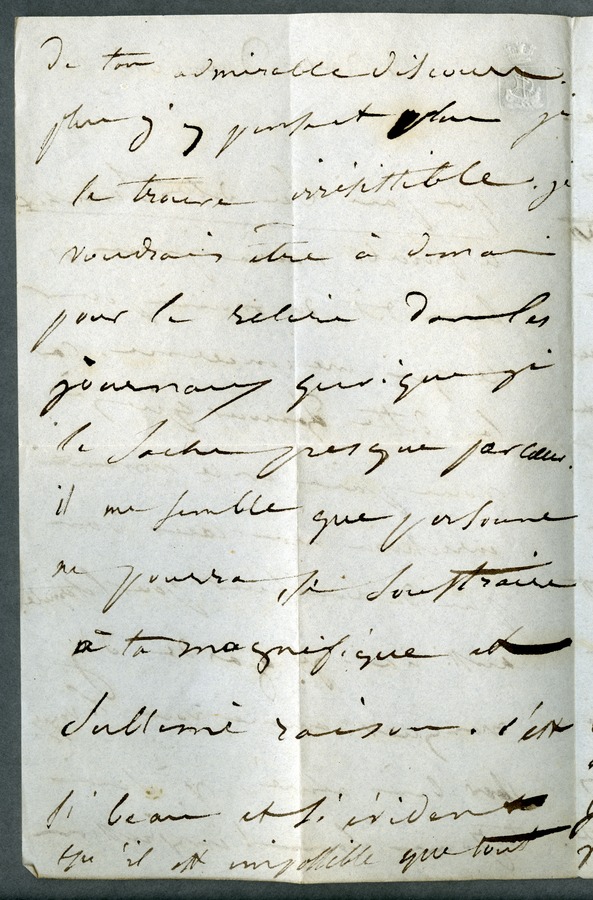 de ton admirable discours.
plus j'y pense et plus je
le trouve irrésistible. je
voudrais être à demain
pour le relire dans les
journaux quoique je
le sache presque par cœur.
il me semble que personne
ne pourra se soustraire
à ta magnifique et
sublime raison. c'est
si beau et si évident
qu'il est impossible que tout